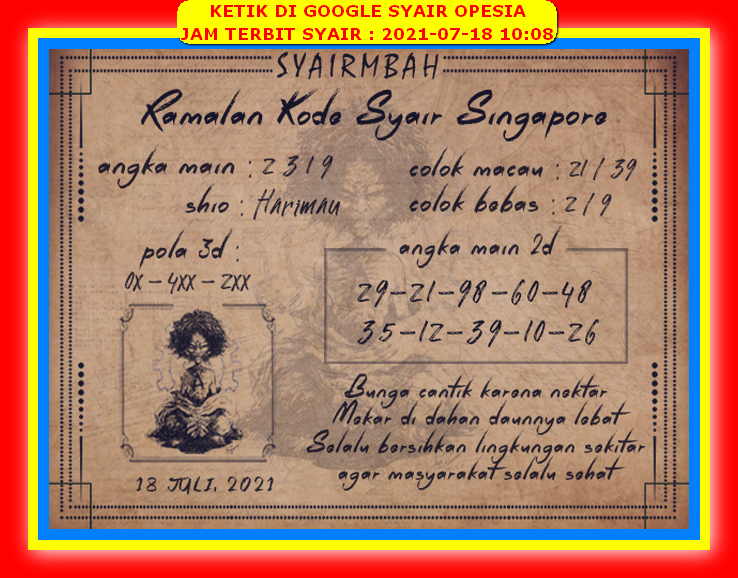 KETIK DI GOOGLE SYAIR OPESIA
JAM TERBIT SYAIR : 2021-07-18 10:08
SYAIRMBAH
Ramalan Kode Syair Singapore
angka main : 2 3 1 9
colok macau : 21 / 39
shio : Harimau
colok bebas : 2 / 9
pola 3d :
0X - 4XX - 2XX
angka main 2d
29-21-98-60-48
35-12-39-10-26
Bunga cantik karena nektar
Mekar di dahan daunnya lebat
Selalu bersihkan lingkungan sekitar
agar masyarakat selalu sehat
18 JULI, 2021